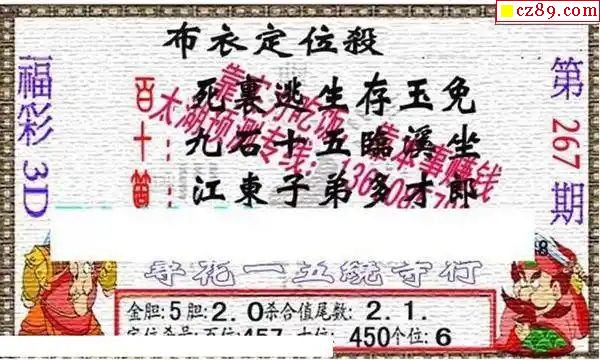 cz89.com
布衣定位殺
福彩3D
第267期
百: 死裏逃生存玉免
十: 九石十五臨溪坐
個: 江東子弟多才郎
靠实力吃饭 靠本事赚钱
太湖预测专线:
8
尋花一五繞寺行
金胆:5胆:2.0杀合值尾数:2.1.
定位杀号:百位:457 十位:450个位:6